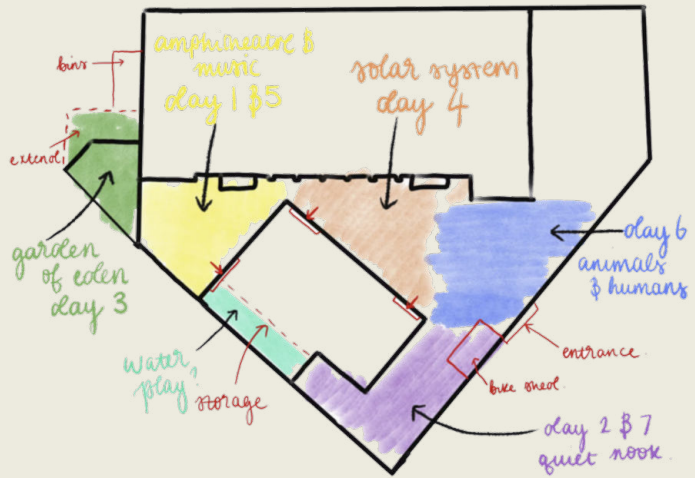 bins
amphitheatre &
music
day 1 & 5
solar system
day 4
extend
garden
of eden
day 3
day 6
animals
& humans
water
play?
storage
entrance
bike shed
day 2 & 7
quiet nook